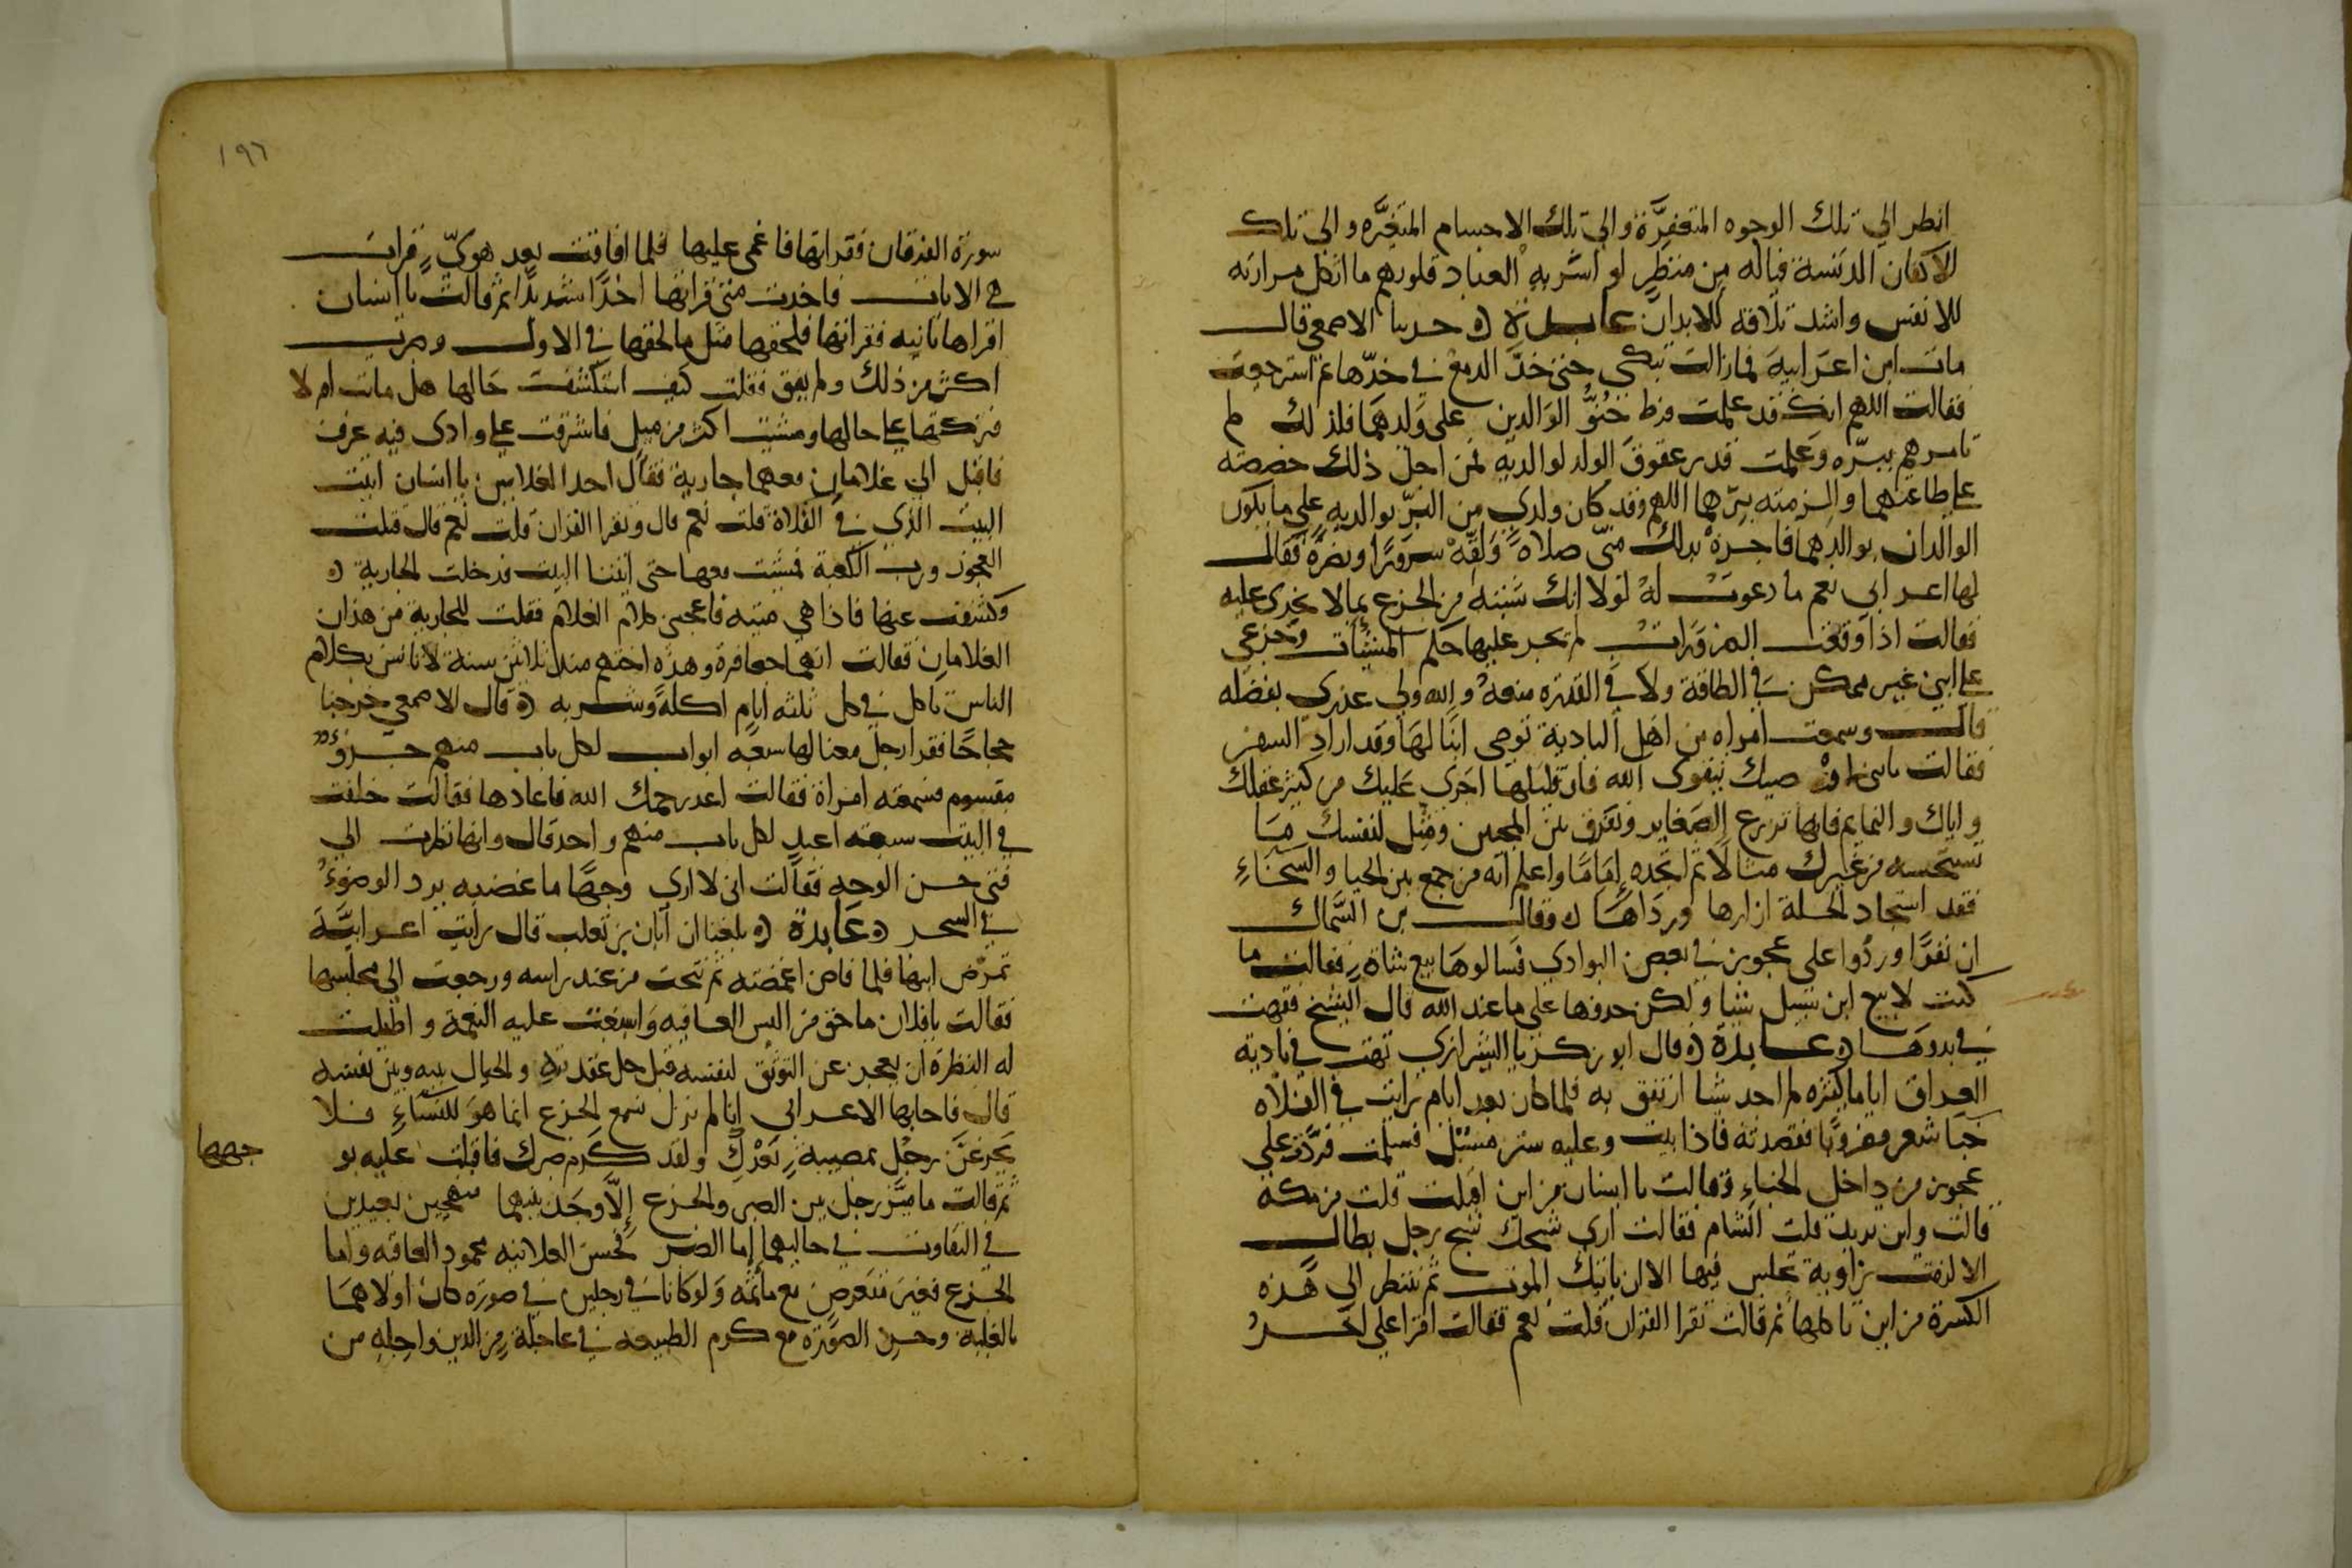 انظر الي تلك الوجوه المتعفرة والى تلك الاجسام المتغيره والى تلك
الاكفان الدنسة فياله من منظر لو اشربه العباد قلوبهم ما اثكل مرارته
للانفس واشد تلافه للابدان عابدة حدثنا الاصمعي قال
مات ابن اعرابية فما زالت تبكى حتى خدّ الدمع في خدّها ثم استرجعت
فقالت اللهم انك قد علمت فرط حُنُوّ الوالدين على ولدهما فلذلك لم
تامرهم ببرّه وعلمت قدر عقوق الولد لوالديه فمن اجل ذلك حضضته
على طاعتهما والزمته برّهما اللهم وقد كان ولدي من البرّ بوالديه على ما يكون
الوالدان بوالدهما فاجزه بذلك منّي صلاة ولقّه سرورًا ونضرة فقال
لها اعرابي نعم ما دعوت له لولا انك شبته من الجزع بما لا يجدى عليه
فقالت اذا وقعت الضرورات لم تجر عليها حكم المشيات وجزعي
على ابني غير ممكن في الطاقة ولا في القدره منعه والله ولي عذري بفضله
قال وسمعت امراه من اهل البادية توصى ابنا لها وقد اراد السفر
فقالت يابني اوصيك بتقوى الله فان قليلها اجدى عليك من كثير عقلك
واياك والنمايم فانها تزرع الضغاين وتفرق بين المحبين ومثّل لنفسك ما
تستحسنه من غيرك مثالًا ثم اتخذه إمامًا واعلم انه من جمع بين الحيا والسخاء
فقد استجاد الحلة ازارها ورداها وقال بن السّماك
ان نفرًا وردُوا على عجوز في بعض البوادي فسالوها بيع شاة فقالت ما
كنت لابيع ابن سبيل شيا ولكن خذوها على ما عند الله قال الشيخ
في بدوها عابدة قال ابو زكريا الشيرازي تهت في بادية
العراق اياما كثيره لم اجد شيا ارتفق به فلما كان بعد ايام رايت في الفلاه
خبا شعر مضروبًا فقصدته فاذا بيت وعليه ستر مسبل فسلمت فردّت علي
عجوز من داخل الخباء وقالت يا انسان من اين اقبلت قلت من مكه
قالت واين تريد قلت الشام فقالت ارى شبحك شبح رجل بطال
الا لزمت زاوية تجلس فيها الا ان ياتيك الموت ثم تنظر الى هذه
الكسرة من اين تاكلها ثم قالت تقرا القران قلت نعم فقالت اقرا علي اخر
١٩٦
سورة الفرقان فقراتها فاغمى عليها فلما افاقت بعد هويّ قرات
هي الايات فاخذت منى قرانها اخذًا شديدًا ثم قالت يا انسان
اقراها ثانيه فقراتها فلحقها مثل ما لحقها في الاول ومرت
اكثر من ذلك ولم يفق فقلت كيف استكشفت حالها هل ماتت ام لا
فتركتها على حالها ومشيت اكثر من ميل فاشرفت على وادى فيه عرف
فاقبل الي غلامان معهما جارية فقال احد الغلامين يا انسان اتيت
البيت الذي في الفلاة قلت نعم قال وتقرا القران قلت نعم قال قتلت
العجوز ورب الكعبة فمشيت معها حتى اتينا البيت فدخلت الجارية
وكشفت عنها فاذا هي ميته فاعجبنى كلام الغلام فقلت للجارية من هذان
الغلامان فقالت انهما جعافرة وهذه اختهم منذ ثلاثين سنة لا تانس بكلام
الناس تاكل في كل ثلثه ايام اكلة وشربه قال الاصمعي خرجنا
حجاجًا فقرا رجل معنا لها سبعة ابواب لكل باب منهم جزؤ
مقسوم فسمعته امراة فقالت اعد رحمك الله فاعادها فقالت خلفت
في البيت سبعة اعبد لكل باب منهم واحد قال وانها نظرت الي
فتى حسن الوجه فقالت انى لا ارى وجهًا ما غضبه برد الوضوء
في السحر عابدة بلغنا ان ابان بن تغلب قال رايت اعرابيّة
تمرّض ابنها فلما فاض اغمضته ثم تنحت من عند راسه ورجعت الي مجلسها
فقالت يا فلان ما حق من البس العافيه واسبغت عليه النعمة واطيلت
له النظرة ان يعجز عن التوثق لنفسه قبل حل عقدته والحيال بينه وبين نفسه
قال فاجابها الاعرابى إنا لم نزل نسمع الجزع انما هو للنساء فلا
يجزعَنّ رجُل بمصيبة بَعْدَكِ ولقد كرم صبرك فاقبلت عليه بو
جهها
ثم قالت ما ميّز رجل بين الصبر والجزع إلّا وجد بينهما منهجين بعيدين
في التفاوت في حاليهما إما الصبر فحسن العلانيه محمود العاقبه واما
الجزع فغير متعوض مع مأثمه ولو كانا في رجلين في صورة كان اولاهما
بالغلبة وحسن الصورة مع كرم الطبيعه في عاجلة من الدين واجله من